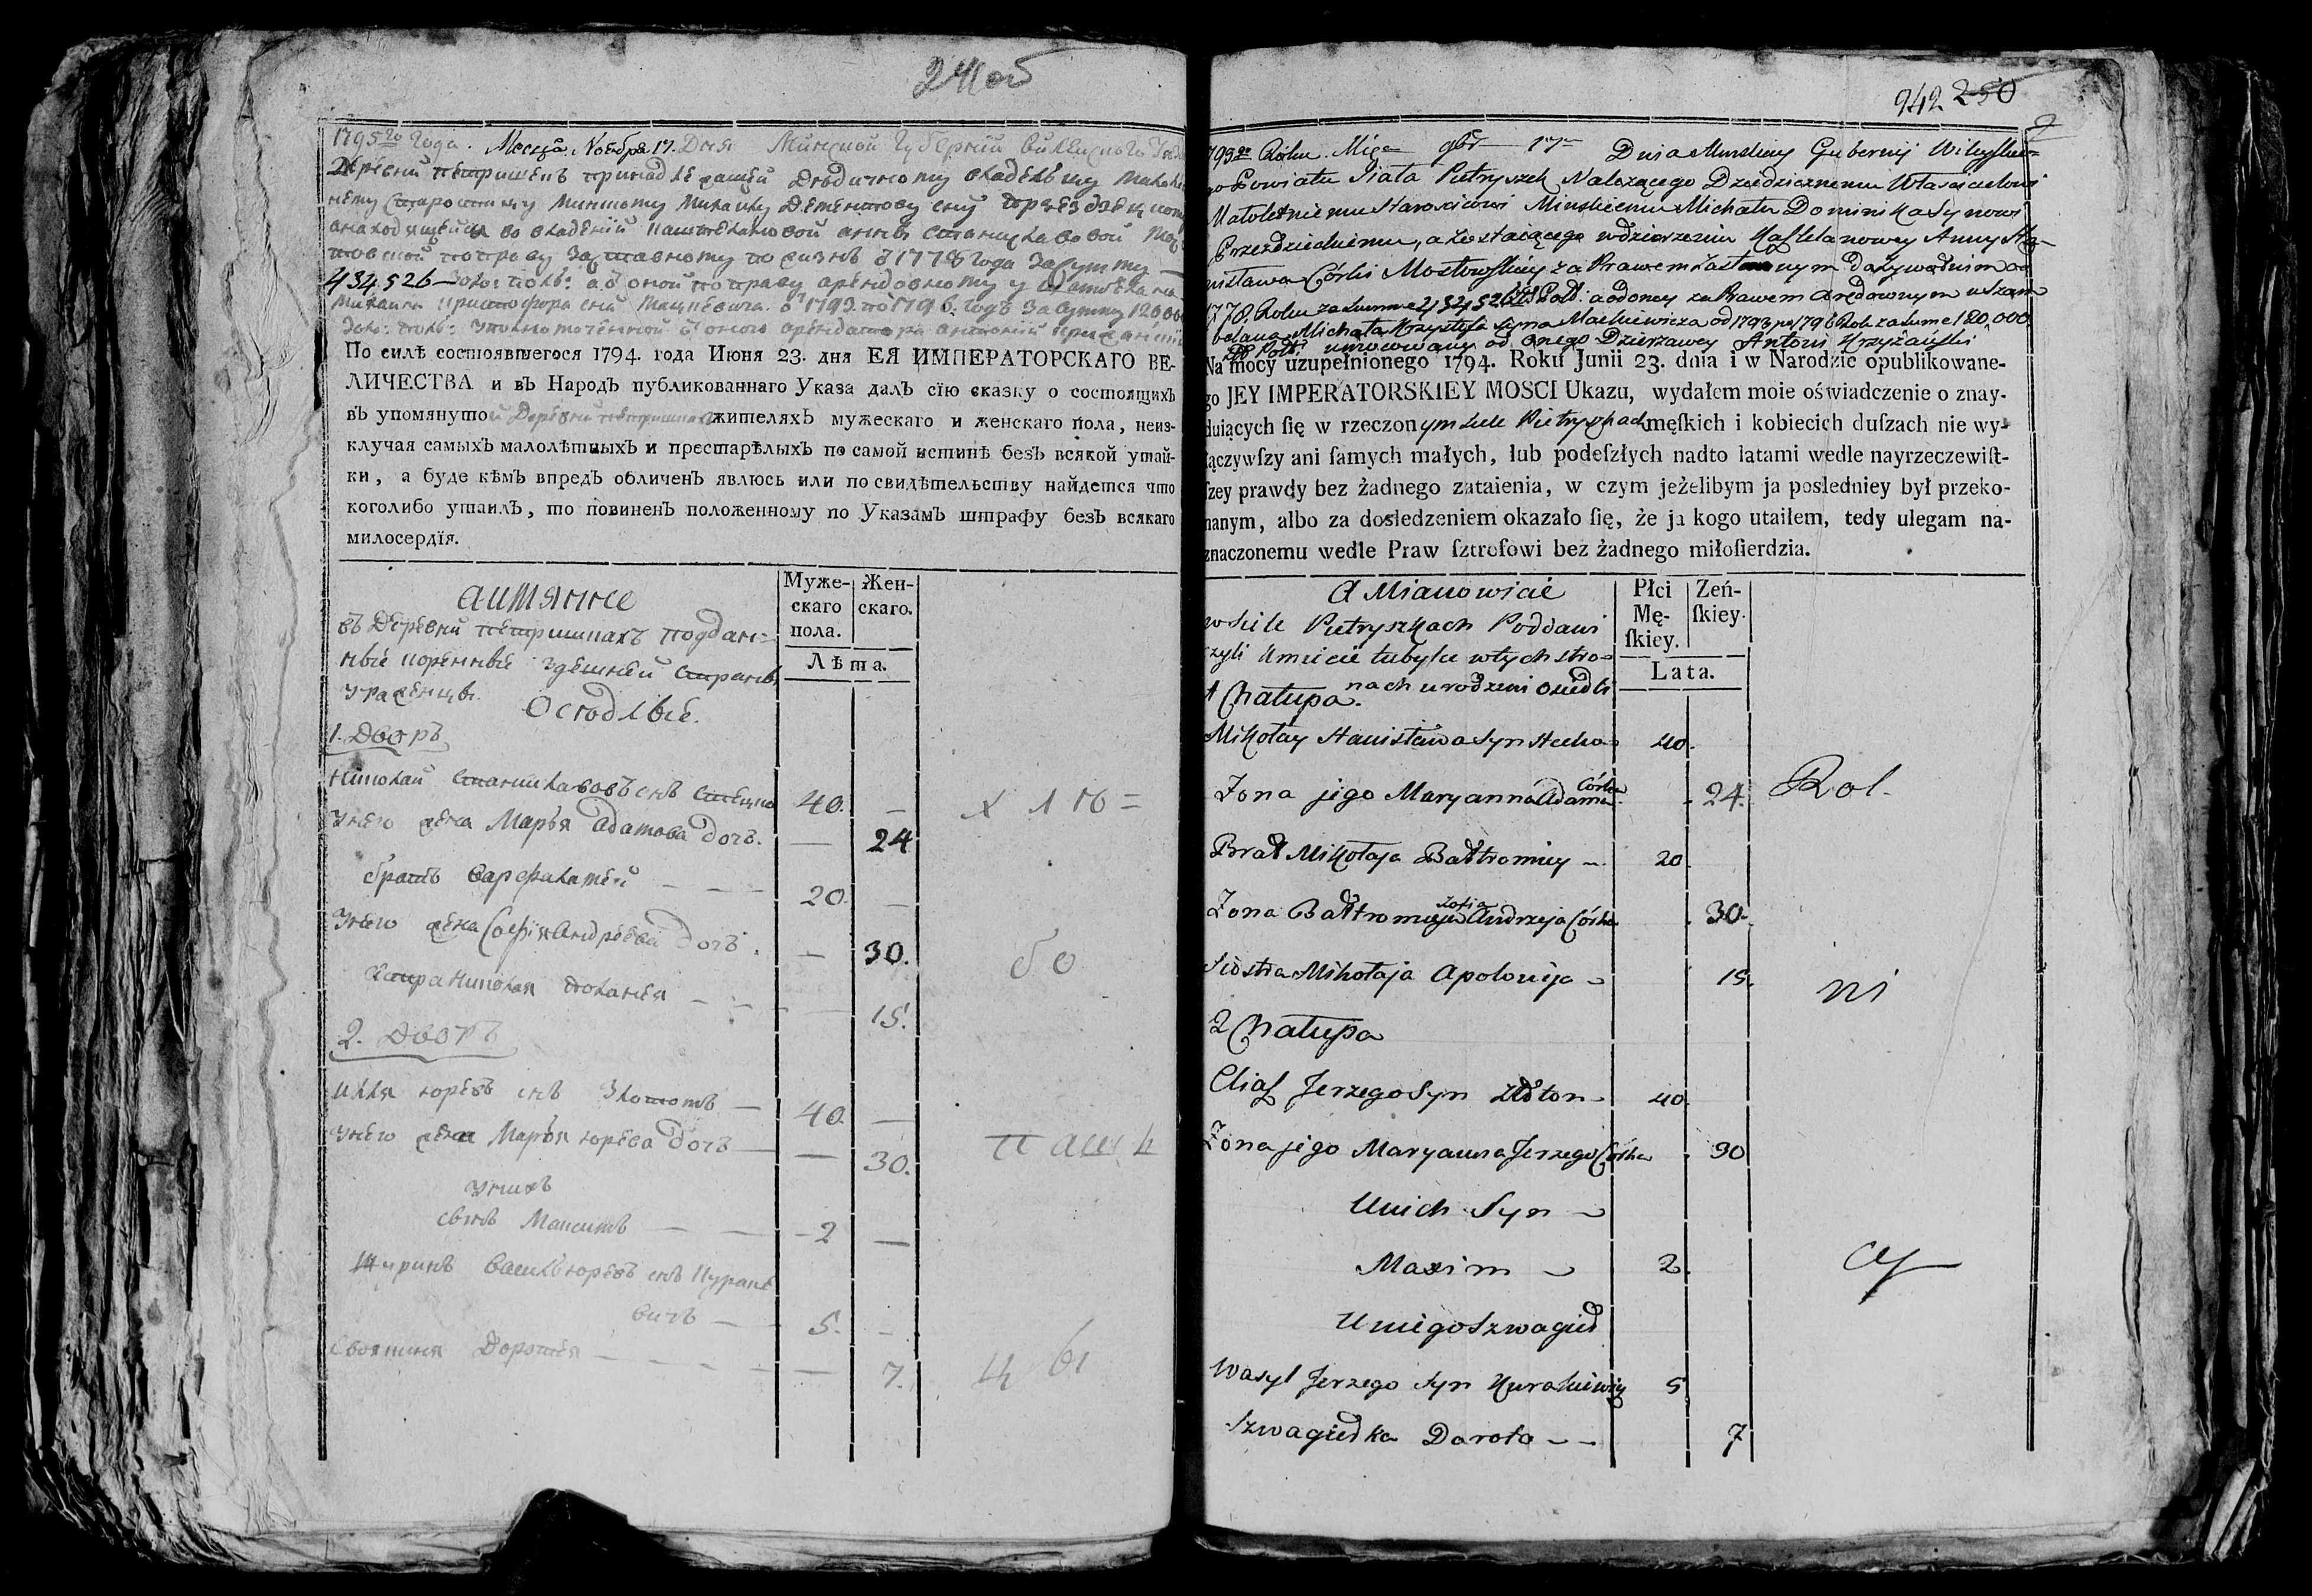 1795го Года. Месяца Ноября 17. Дня Минской Губернии Вилейскаго
Деревни Петришекъ принадлежащей Дѣдичному владельцу
Старостицу Минскому Михайлу
во владении Анны Станиславовой
1778 года За сумму
434,526
1793. по 1796. годъ за сумму 120000
По силѣ состоявшегося 1794. года Июня 23. дня ЕЯ ИМПЕРАТОРСКАГО ВЕ-
ЛИЧЕСТВА и въ НародЪ публикованнаго Указа далЪ сїю сказку о состоящихЪ
въ упомянутой Деревни жителяхЪ мужескаго и женскаго пола, неиз-
ключая самыхЪ малолѣтныхЪ и престарѣлыхЪ по самой истинѣ безЪ всякой утай-
ки, а буде кѣмЪ впредЪ обличенЪ явлюсь или по свидѣтельству найдется что
коголибо утаилЪ, то повиненЪ положенному по УказамЪ штрафу безЪ всякаго
милосердїя.
Муже-
скаго
пола.
Жен-
скаго.
Лѣта.
а имянно
въ Деревни Петришкахъ поддан-
ные коренные здешней стороны
Уроженцы.
Оседлые.
1. Дворъ
Николай Станиславовъ снъ Стецко 40. —
У него жена Марья Адамова дочь. — 24
братъ Варфоломей — — — 20. —
У него жена Софiя Андреева дочь. — 30.
Сестра Николая — — — 15.
2. Дворъ
Илля Юрьевъ снъ Злотонъ — 40. —
У него жена Марья Юрьева дочь — — 30.
У нихъ
сынъ Максимъ — — 2 —
Шуринъ Василь Юрьевъ снъ Кураке
вичъ — — 5. —
Свояченя Доротея — — — — 7.
942 250
1795go Roku. Mięca 9br 17 Dnia Minskiey Gubernij Wileyskie-
go Powiatu Siała Pietryszek Należącego Dziedzicznemu Własicielowi
Małoletniemu Starościcowi Minskiemu Michału Dominika Synowi
Przezdzieckiemu, a Zostaiącego w dzierżeniu Kasztelanowey Anny Sta-
nisława Córki Mostowskiey za Prawem Zastawnym dożywodnim od
1778 Roku za Summe 434526 Zł Pol: a od oney za Prawem arędownym u Szam
belana Michała Krzysztofa Syna Mackiewicza od 1793 po 1796 Rok za Sume 120,000
Zł Pol: umocowany od onego Dzierżawcy Antoni Krzyżański
Na mocy uzupełnionego 1794. Roku Junii 23. dnia i w Narodzie opublikowane-
go JEY IMPERATORSKIEY MOSCI Ukazu, wydałem moie oświadczenie o znay-
duiących ſię w rzeczonym Siele Pietryszkach męſkich i kobiecich duſzach nie wy-
łączywſzy ani ſamych małych, lub podeſzłych nadto latami wedle nayrzeczewiſt-
ſzey prawdy bez żadnego zataienia, w czym jeżelibym ja posledniey był przeko-
nanym, albo za dosledzeniem okazało ſię, że ja kogo utaiłem, tedy ulegam na-
znaczonemu wedle Praw ſztrofowi bez żadnego miłoſierdzia.
Płci
Mę-
ſkiey.
Zeń-
ſkiey.
Lata.
A Mianowicie
w Siele Pietryszkach Poddani
czyli Kmiecie tubylce w tych stro-
nach urodzeni osiedli
1 Chałupa.
Mikołay Stanisława Syn Stecko 40.
Zona jego Maryanna Adama Córka 24.
Brat Mikołaja Bałtromiey — 20.
Zona Bałtromieja Zofia Andrzeja Córka 30.
Siostra Mikołaja Apolonija — 15.
2 Chałupa
Eliaſz Jerzego Syn Złoton — 40.
Zona jego Maryanna Jerzego Córka 30
U nich Syn —
Maxim — 2.
U niego Szwagier
Wasyl Jerzego Syn Kurakiewicz 5
Szwagierka Dorota — — 7
Rol.
ni
cy